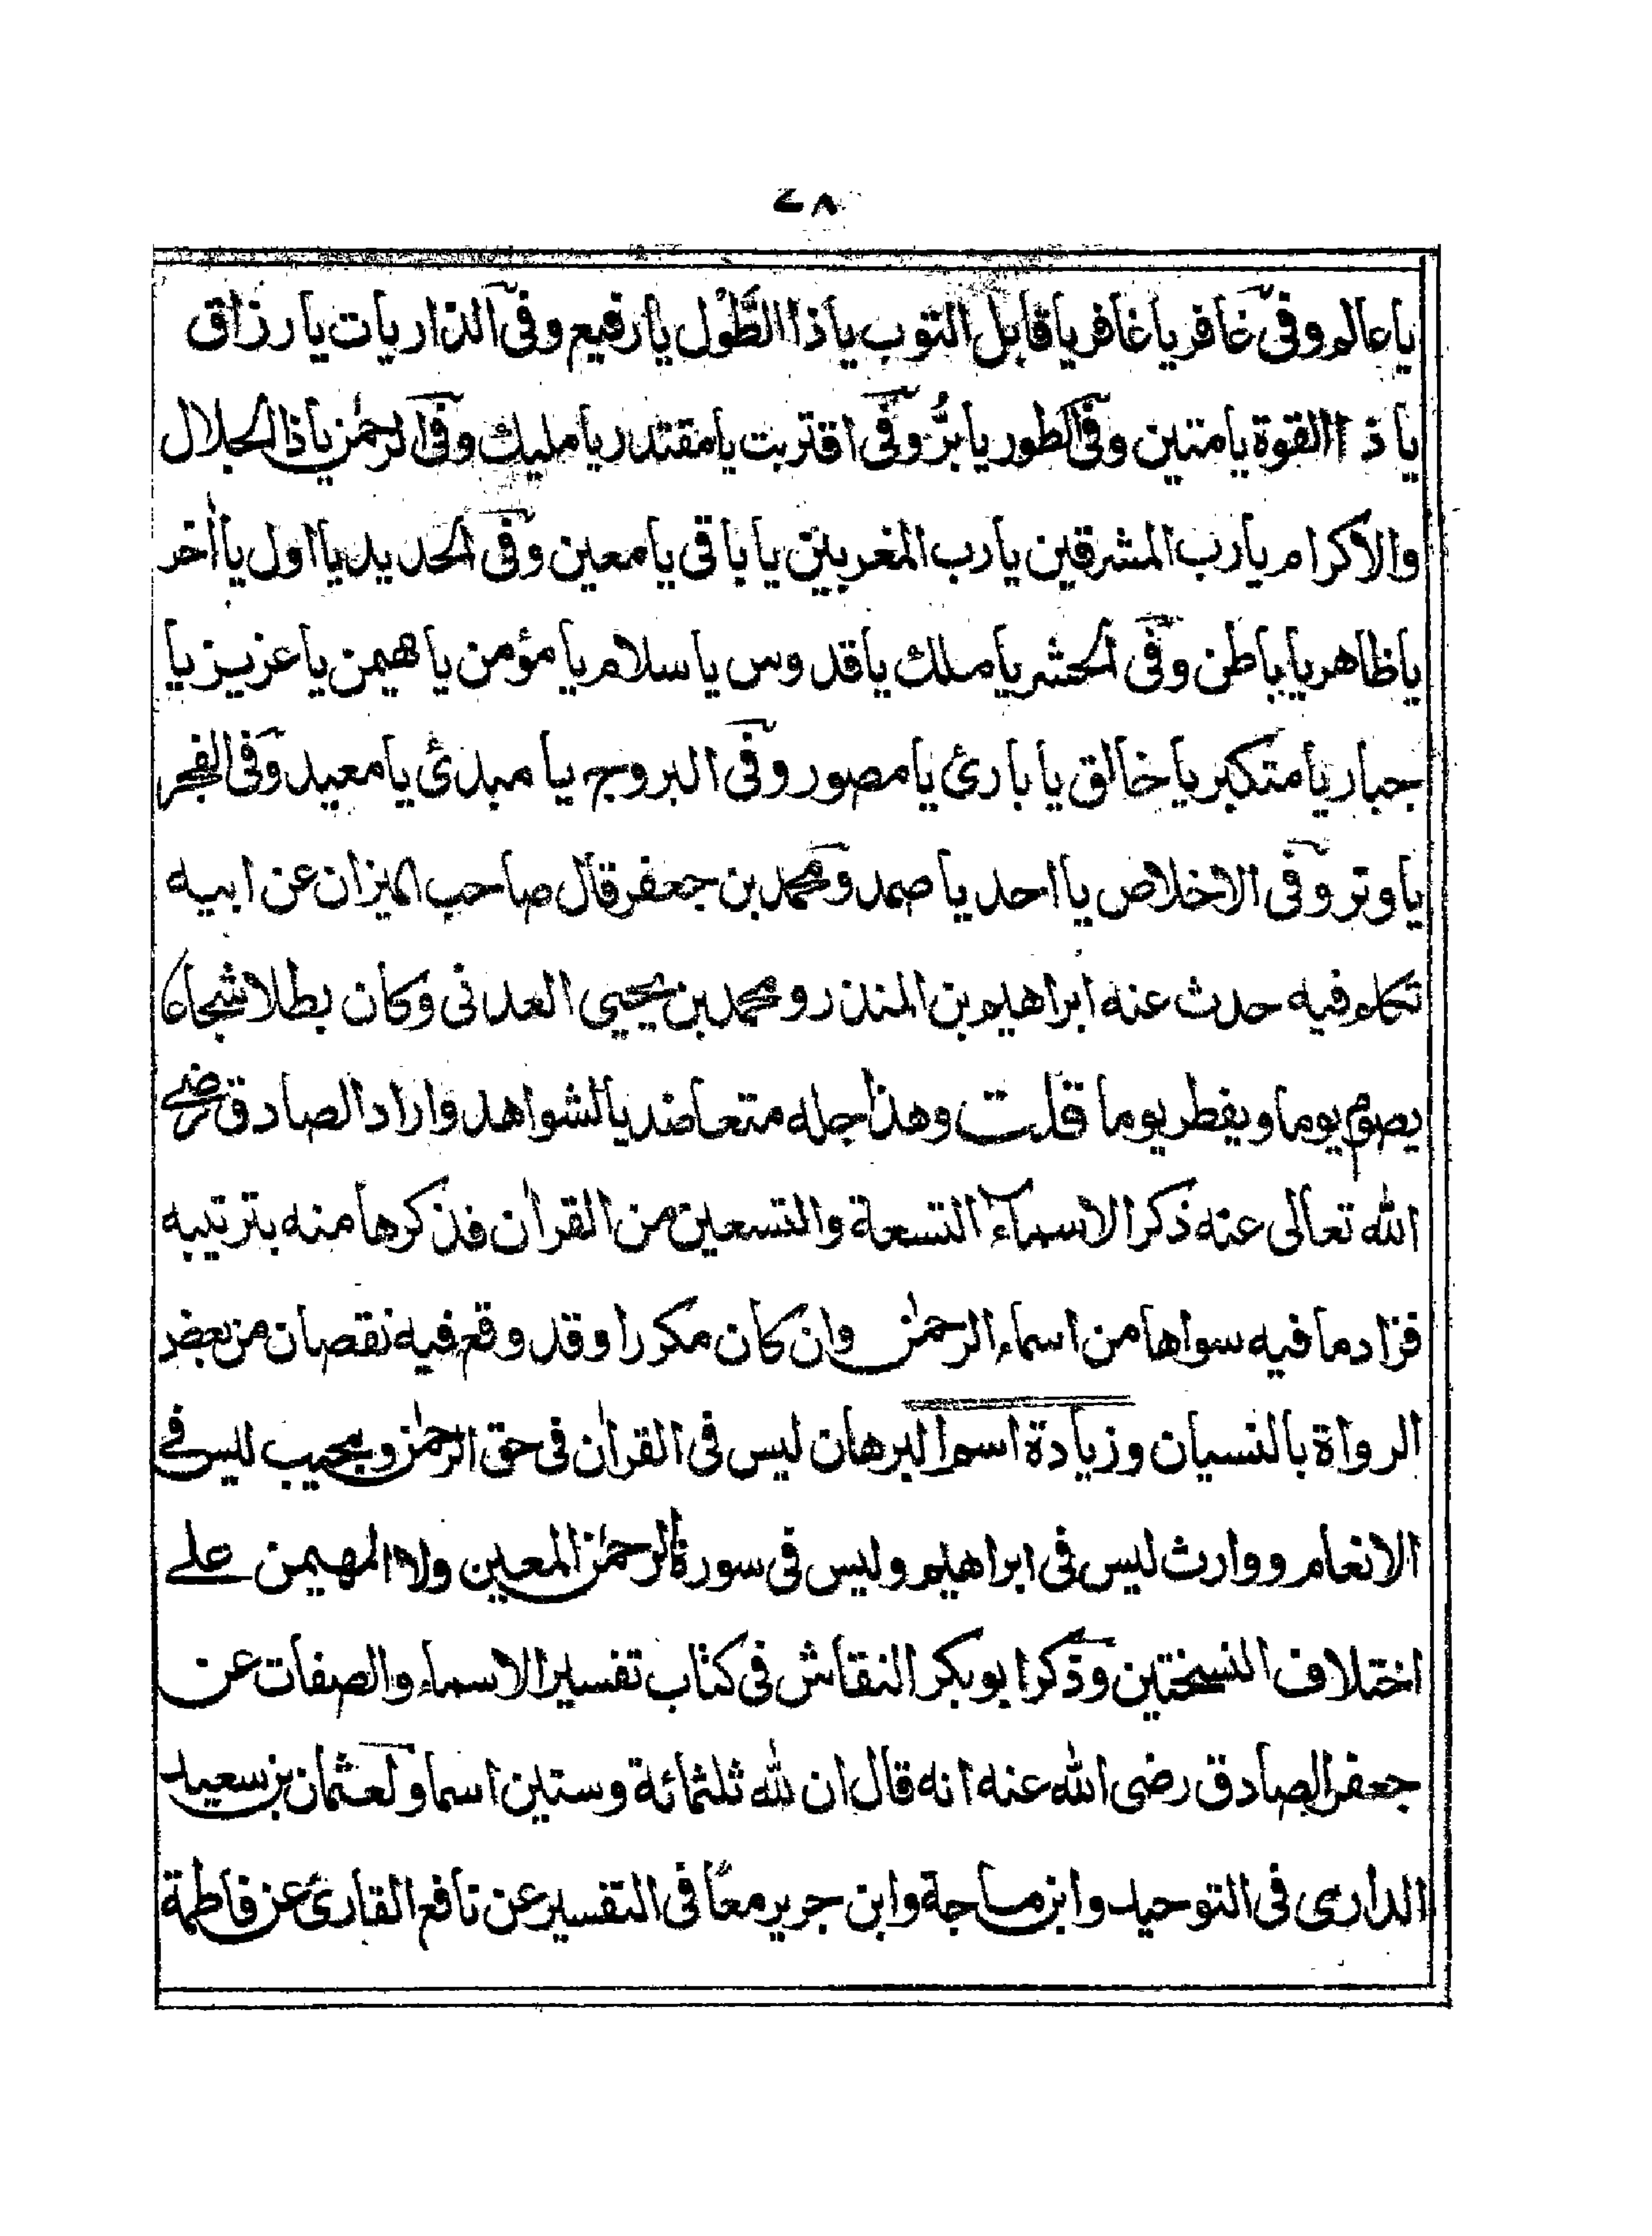 ٤٨
يا عالم وفى غافر يا غافر يا قابل التوب يا ذا الطَّوْل يا رفيع وفى الذاريات يا رزاق
يا ذا القوة يا متين وفى الطور يا برُّ وفى اقتربت يا مقتدر يا مليك وفى الرحمٰن يا ذا الجلال
والاكرام يا رب المشرقين يا رب المغربين يا باقى يا معين وفى الحديد يا اول يا اٰخر
يا ظاهر يا باطن وفى الحشر يا ملك يا قدوس يا سلام يا مؤمن يا مهيمن يا عزيز يا
جبار يا متكبر يا خالق يا بارئ يا مصور وفى البروج يا مبدئ يا معيد وفى الفجر
يا وتر وفى الاخلاص يا احد يا صمد ومحمد بن جعفر قال صاحب الميزان عن ابيه
تكلم فيه حدث عنه ابراهيم بن المنذر ومحمد بن يحيى العدنى وكان بطلا شجاعا
يصوم يوما ويفطر يوما قلت وهذا جله متعاضد بالشواهد واراد الصادق رضى
الله تعالى عنه ذكر الاسماء التسعة والتسعين من القراٰن فذكرها منه بترتيبه
فزاد ما فيه سواها من اسماء الرحمٰن وان كان مكررا وقد وقع فيه نقصان من بعض
الرواة بالنسيان وزيادة اسم البرهان ليس فى القراٰن فى حق الرحمٰن ومجيب ليس فى
الانعام ووارث ليس فى ابراهيم وليس فى سورة الرحمٰن المعين ولا المهيمن على
اختلاف النسختين وذكر ابو بكر النقاش فى كتاب تفسير الاسماء والصفات عن
جعفر الصادق رضى الله عنه انه قال ان لله ثلثمائة وستين اسما ولعثمان بن سعيد
الدارى فى التوحيد وابن ماجة وابن جرير معًا فى التفسير عن نافع القارئ عن فاطمة